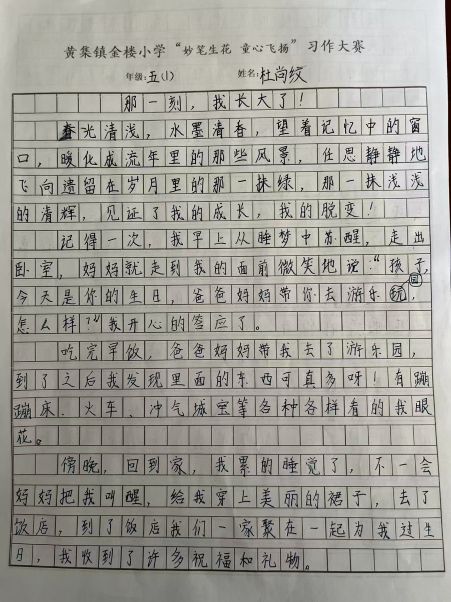 黄集镇金楼小学“妙笔生花 童心飞扬”习作大赛
年级:五(1) 姓名:杜尚纹
那一刻，我长大了！
春光清浅，水墨清香，望着记忆中的窗
口，暖化成流年里的那些风景，任思静静地
飞向遗留在岁月里的那一抹绿，那一抹浅浅
的清辉，见证了我的成长，我的脱变！
记得一次，我早上从睡梦中苏醒，走出
卧室，妈妈就走到我的面前微笑地说：“孩子，
今天是你的生日，爸爸妈妈带你去游乐园，
怎么样？”我开心的答应了。
吃完早饭，爸爸妈妈带我去了游乐园，
到了之后我发现里面的东西可真多呀！有蹦
蹦床、火车、冲气城宝等各种各样看的我眼
花。
傍晚，回到家，我累的睡觉了，不一会
妈妈把我叫醒，给我穿上美丽的裙子，去了
饭店，到了饭店我们一家聚在一起为我过生
日，我收到了许多祝福和礼物。